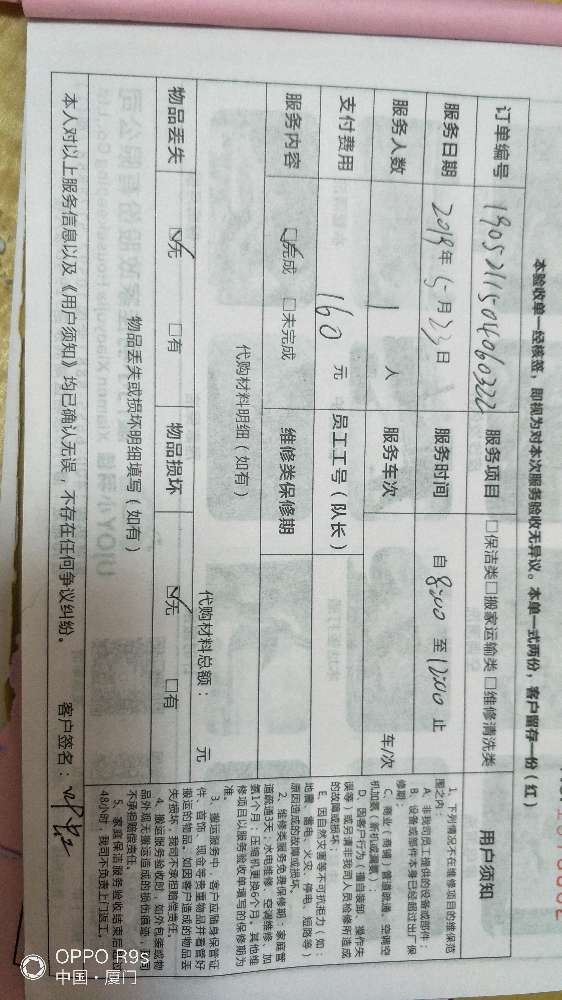 本验收单一经核签，即视为对本次服务验收无异议。本单一式两份，客户留存一份（红）
订单编号 190521150406032 服务项目 □保洁类□搬家运输类□维修清洗类
服务日期 2019年5月23日 服务时间 自8:00至12:00止
服务人数 1 人 服务车次 车/次
支付费用 160 元 员工工号（队长）
服务内容 ☑完成 □未完成 维修类保修期
代购材料明细（如有） 代购材料总额： 元
物品丢失 ☑无 □有 物品损坏 ☑无 □有
物品丢失或损坏明细填写（如有）
本人对以上服务信息以及《用户须知》均已确认无误，不存在任何争议纠纷。 客户签名：
用户须知
1、下列情况不在维修项目的维保范
围之内：
A、非我司员工提供的设备或部件；
B、设备或部件本身已经超过出厂保
修期；
C、商业（商铺）管道疏通、空调空
机加氨（新机或漏氨）；
D、因客户行为（擅自装卸、操作失
误等）或另请非我司人员检修所造成
的故障或损坏；
E、因自然灾害等不可抗拒力（如：
地震、雷击、火灾、停电、短路等）
原因造成的故障或损坏。
2、维修类服务免费保修期：家庭管
道疏通3天；水电维修、空调维修、加
氨1个月；压缩机更换6个月，其他维
修项目以服务验收单填写的保修期为
准。
3、搬运服务中，客户应随身保管证
件、首饰、现金等贵重物品并看管好
搬运的物品，如因客户造成的物品丢
失/损坏，我司不承担赔偿责任。
4、搬运服务验收时，如外包装或物
品外观无搬运造成的损伤痕迹，我司
不承担赔偿责任。
5、家庭保洁服务验收结束后超过
48小时，我司不负责上门返工。
OPPO R9s
中国·厦门